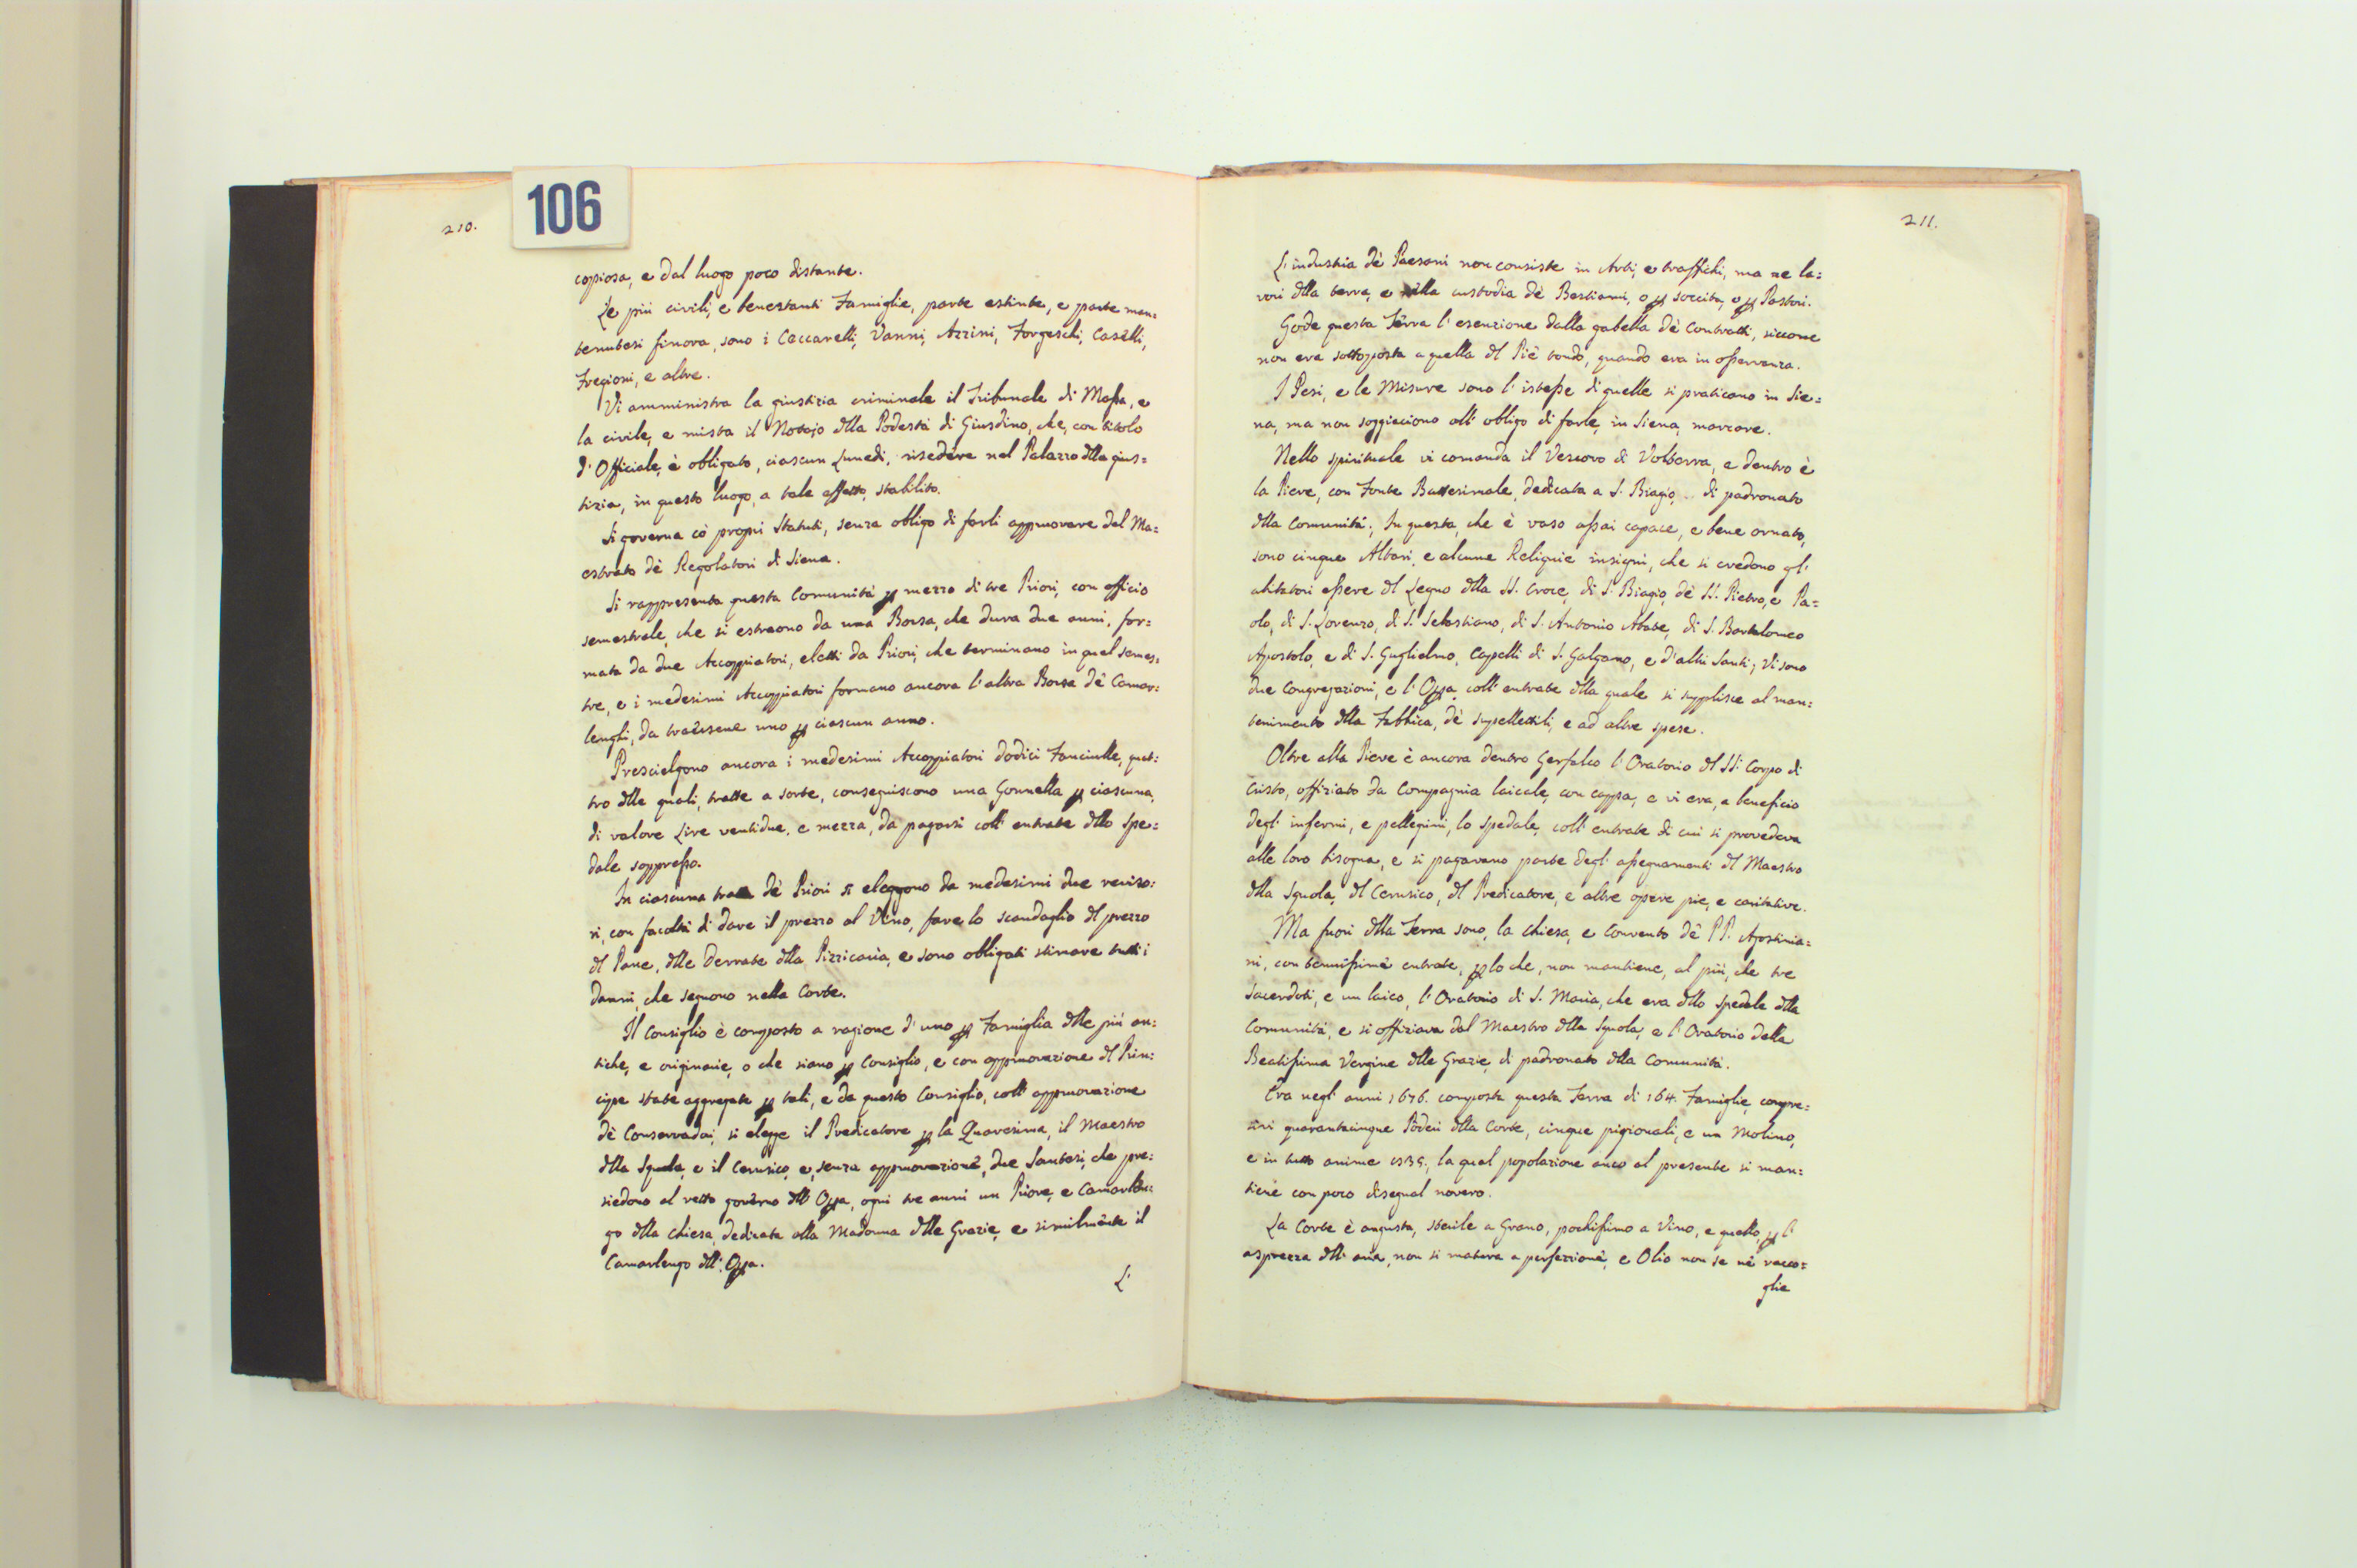 210.
106
copiosa, e dal luogo poco distante.
Le più civili, e benestanti Famiglie, parte estinte, e parte man:
tenutesi finora, sono i Ceccarelli, Vanni, Azzini, Forgeschi, Caselli,
Fregioni, e altre.
Vi amministra la giustizia criminale il Tribunale di Massa, e
la civile, e mista il Notajo dlla Podestà di Giusdino, che, con titolo
d' Officiale, è obligato, ciascun Lunedì, risedere nel Palazzo dlla gius=
tizia, in questo luogo, a tale effetto, stabilito.
Si governa cò propri Statuti, senza obligo di farli approvare dal Ma=
estrato dè Regolatori di Siena.
Si rappresenta questa Comunità p mezzo di tre Priori, con officio
semestrale, che si estraono da una Borsa, che dura due anni, for=
mata da due Accoppiatori, eletti da Priori, che terminano in quel semes,
tre, e i medesimi Accoppiatori formano ancora l' altra Borsa dè Camar:
lenghi, da traersene uno p ciascun anno.
Prescielgono ancora i medesimi Accoppiatori dodici Fanciulle, quat:
tro dlle quali, tratte a sorte, conseguiscono una Gonnella p ciascuna,
di valore Lire ventidue, e mezza, da pagarsi coll' entrate dllo Spe=
dale soppresso.
In ciascuna tratta dè Priori si eleggono da medesimi due reviso:
ri, con facoltà di dare il prezzo al Vino, fare lo scandaglio dl prezzo
dl Pane, dlle derrate dlla Pizzicaria, e sono obligati stimare tutti i
danni, che seguono nella Corte.
Il Consiglio è composto a ragione d' uno p Famiglia dlle più an:
tiche, e originarie, o che siano p Consiglio, e con approvazione dl Prin:
cipe state aggregate p tali, e da questo Consiglio, coll' approvazione
dè Conservadori, si elegge il Predicatore p la Quaresima, il Maestro
dlla Squola, e il Cerusico, e, senza approvazione, due Santesi, che pre:
siedono al retto governo dll' Opa, ogni tre anni un Priore, e Camarlen:
go dlla Chiesa, dedicata alla Madonna dlle Grazie, e similmente il
Camarlengo dll' Opa.
L'
211.
L' industria dè Paesani non consiste in Arti, e traffichi, ma ne la=
vori dlla terra, e nella custodia dè Bestiami, o p soccita, o p Pastori.
Gode questa Terra l' esenzione dalla gabella dè Contratti, siccome
non era sottoposta a quella dl Piè tondo, quando era in osservanza.
I Pesi, e le Misure sono l' istesse di quelle si praticano in Sie=
na, ma non soggiacciono all' obligo di farle, in Siena, marcare.
Nello spirituale vi comanda il Vescovo di Volterra, e dentro è
la Pieve, con Fonte Battesimale, dedicata a S. Biagio, di padronato
dlla Comunità; In questa, che è vaso assai capace, e bene ornato,
sono cinque Altari, e alcune Reliquie insigni, che si credono gl'
abitatori essere dl Legno dlla SS. Croce, di S. Biagio, dè SS. Pietro, e Pa=
olo, di S. Lorenzo, di S. Sebastiano, di S. Antonio Abate, di S. Bartolomeo
Apostolo, e di S. Guglielmo, Capelli di S. Galgano, e d' altri Santi; Vi sono
due Congregazioni, e l' Opa, coll' entrate dlla quale si supplisce al man:
tenimento dlla Fabbrica, dè supellettili, e ad altre spese.
Oltre alla Pieve è ancora dentro Gerfalco l' Oratorio dl SS. Corpo di
Cristo, offiziato da Compagnia laicale, con cappa, e vi era, a beneficio
degl' infermi, e pellegrini, lo Spedale, coll' entrate di cui si provedeva
alle loro bisogna, e si pagavano parte degl' assegnamenti dl Maestro
dlla Squola, dl Cerusico, dl Predicatore, e altre opere pie, e caritative.
Ma fuori dlla Terra sono, la Chiesa, e Convento dè PP. Agostinia=
ni, con tenuissime entrate, p lo che, non mantiene, al più, che tre
Sacerdoti, e un laico, l' Oratorio di S. Maria, che era dllo Spedale dlla
Comunità, e si offiziava dal Maestro dlla Squola, e l' Oratorio della
Beatissima Vergine dlle Grazie, di padronato dlla Comunità.
Era negl' anni 1676. composta questa Terra di 164. Famiglie, compre=
sivi quarantacinque Poderi dlla Corte, cinque pigionali, e un Molino,
e in tutto anime la qual popolazione anco al presente si man:
tiene con poco disegual novero.
La Corte è angusta, sterile a Grano, pochissimo a Vino, e quello, p l'
asprezza dll' aria, non si matura a perfezione, e Olio non se nè racco=
glie